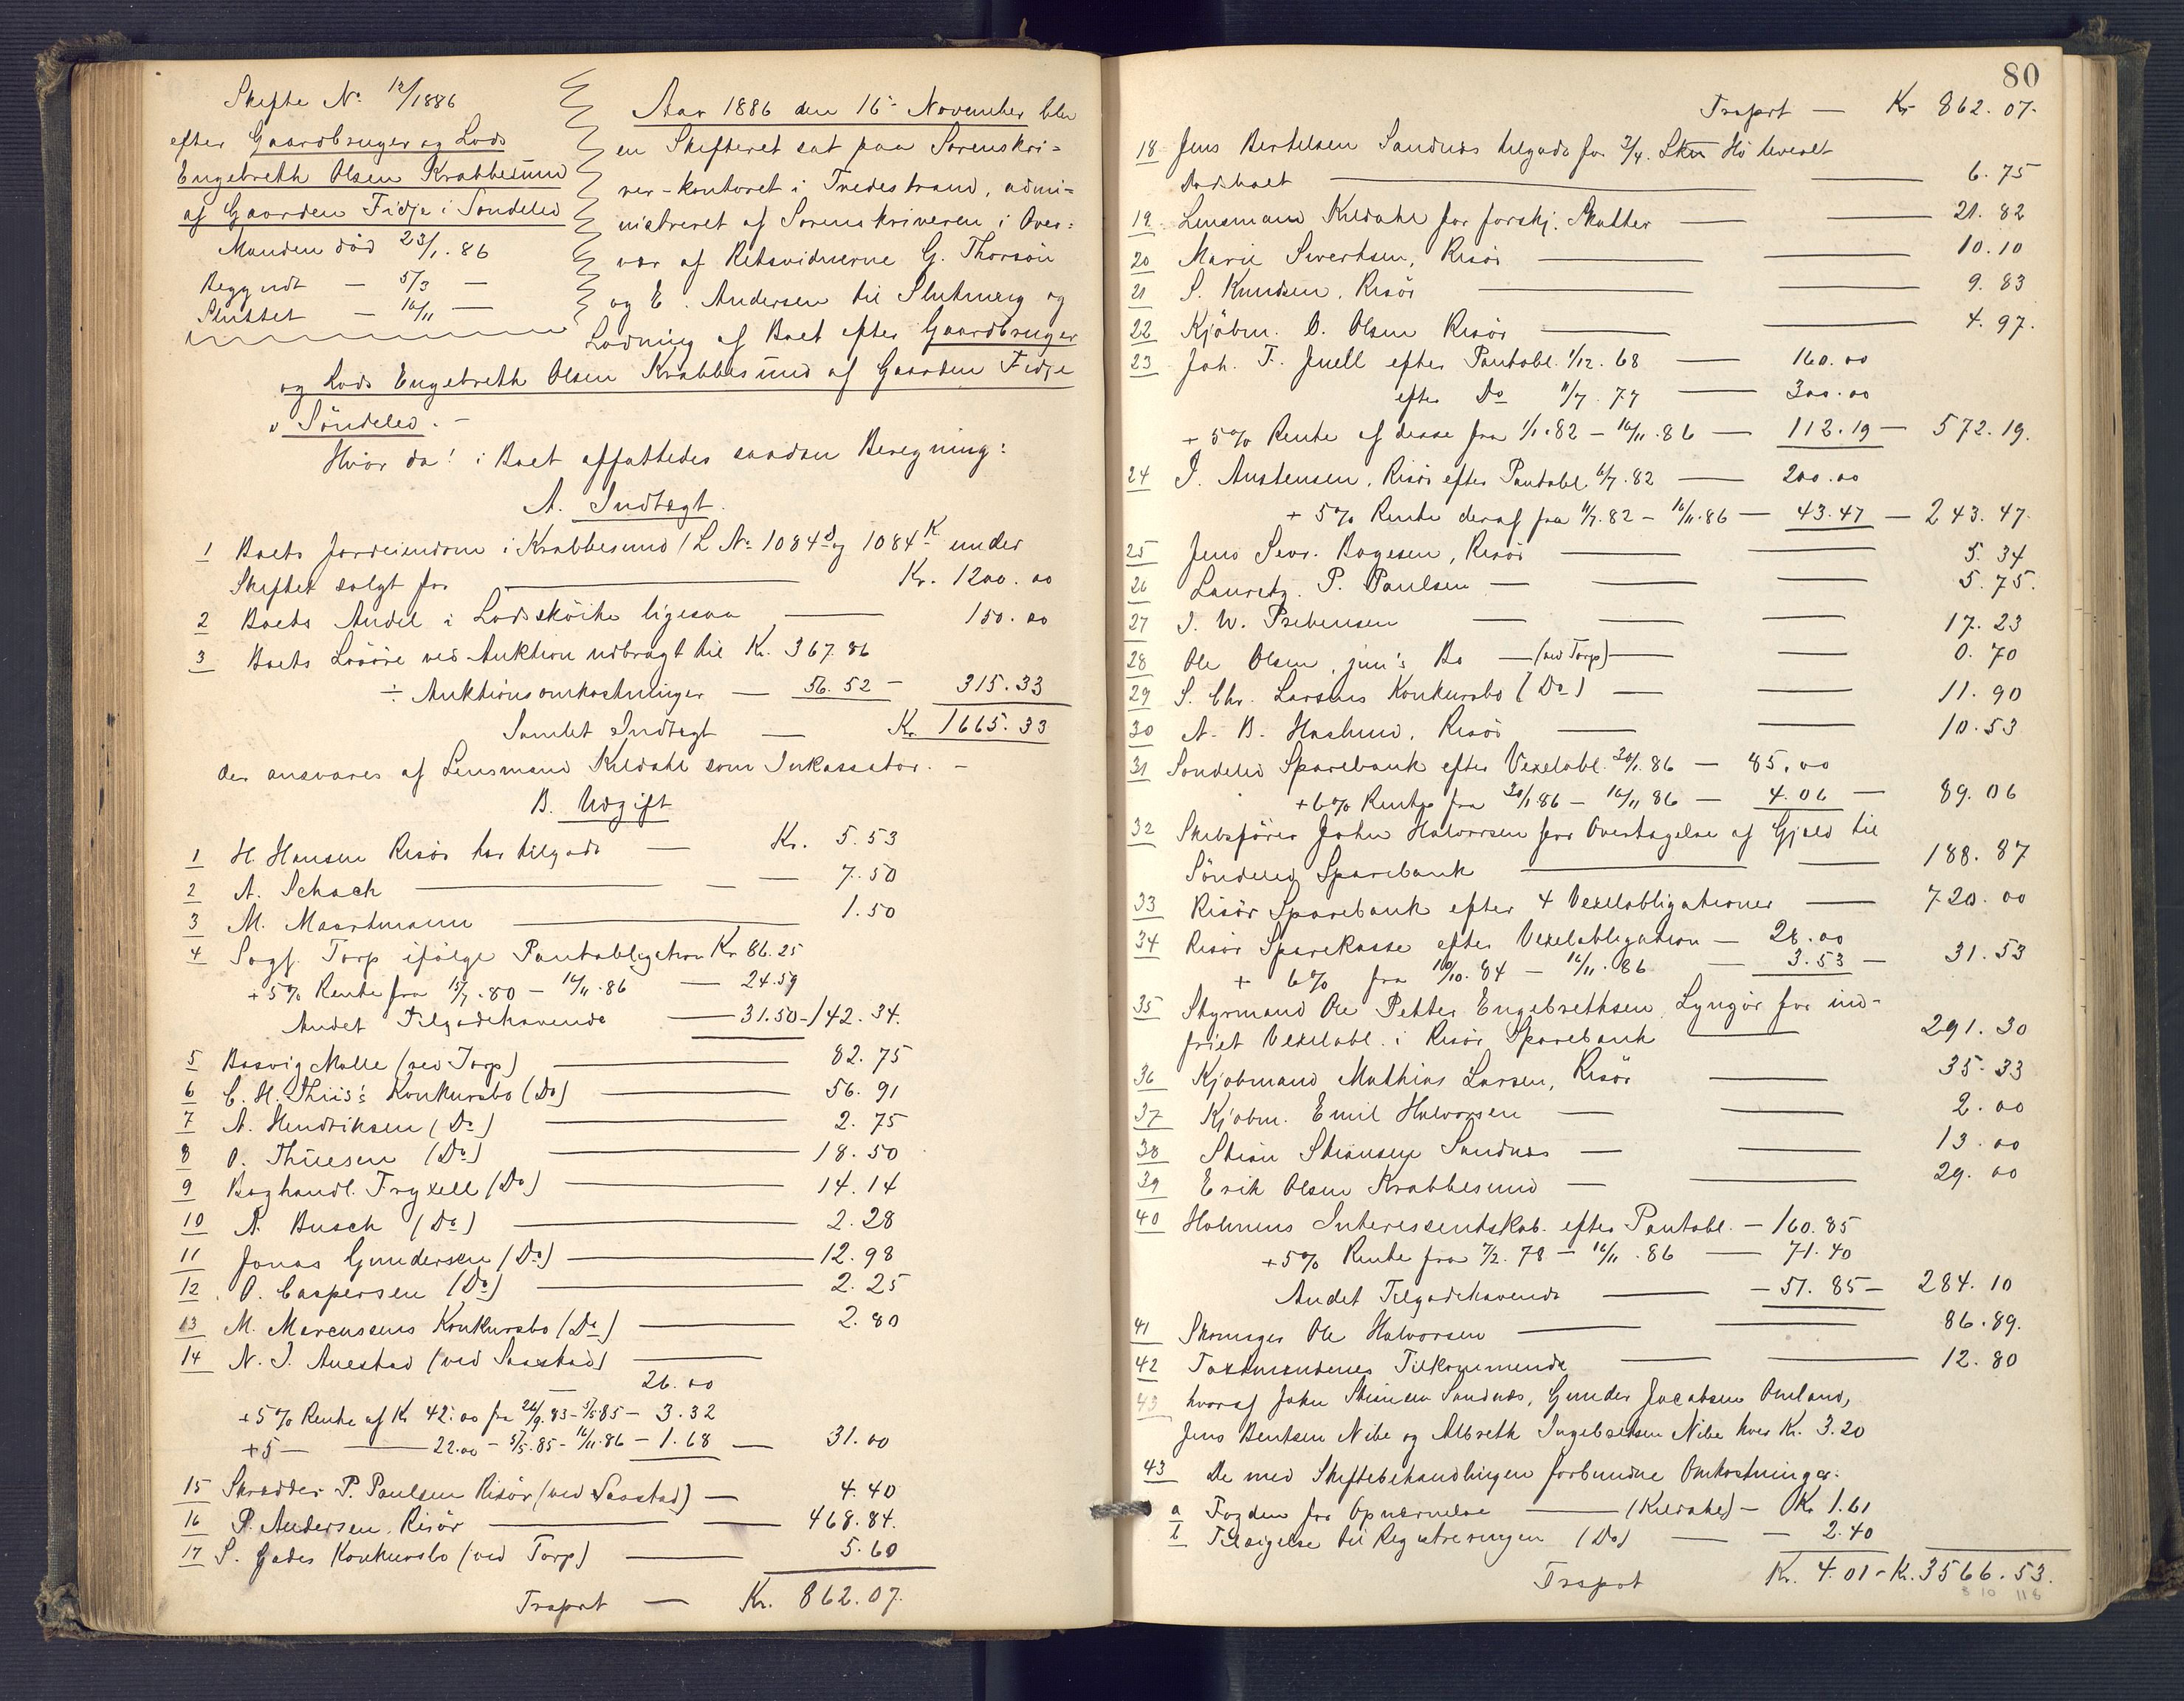 Skifte No 12/1886
efter Gaardbruger og Lods
Engebreth Olsen Krabbesund
af Gaarden Fidje i Søndeled
Manden död 23/1. 86
Begyndt — 5/3 —
Sluttet — 16/11 —
Aar 1886 den 16 November blev
en Skifteret sat paa Sorenskri=
ver-kontoret i Tvedestrand, admi=
nistreret af Sorenskriveren i Over=
vær af Retsvidnerne G. Thorsön
og E. Andersen til Slutning og
Lodning af Boet efter Gaardbruger
og Lods Engebreth Olsen Krabbesund af Gaarden Fidje
i Söndeled. —
Hvor da! i Boet affattedes saadan Beregning:
A. Indtægt.
1 Boets Jordeiendom i Krabbesund (L No 1084d og 1084k under
Skiftet solgt for — Kr. 1200.00
2 Boets Andel i Lodsskóite ligesaa — 150.00
3 Boets Lösöre ved Auktion udbragt til Kr. 367.86
÷ Auktionsomkostninger — 56.52 — 315.33
Samlet Indtægt — Kr. 1665.33
der ansvares af Lensmand Kildahl som Inkassator. —
B. Udgift
1 H. Hansen Risör har tilgode — Kr. 5.53
2 A. Schack — 7.50
3 M. Maartmann — 1.50
4 Sagf. Torp ifölge Pantobligation Kr 86.25
+ 5% Rente fra 15/7.80 — 16/11.86 — 24.59
Andet Tilgodehavende — 31.50 — 142.34.
5 Bosvig Mølle (ved Torp) — 82.75
6 C. H. Thiis's Konkursbo (Do) — 56.91
7 A. Hendriksen (Do) — 2.75
8 O. Thuesen (Do) — 18.50
9 Boghandl. Fryxell (Do) — 14.14
10 A. Busch (Do) — 2.28
11 Jonas Gundersen (Do) — 12.98
12 O. Caspersen (Do) — 2.25
13 M. Marcussens Konkursbo (Do) — 2.80
14 N. J. Auestad (ved Saastad) —
26.00
+ 5% Rente af Kr 42.00 fra 26/9.83 — 5/5 85 — 3.32
+ 5 — — 22.00 — 5/5.85 — 16/11.86 — 1.68 — 31.00
15 Skrædder P. Paulsen Risör (ved Saastad) — 4.40
16 P. Andersen, Risör — 468.84.
17 S. Gades Konkursbo (ved Torp) — 5.60
Trsprt — Kr. 862.07.
80
Trsprt — Kr 862.07.
18 Jens Bertelsen Sandnæs tilgode for 3/4. Hö leveret
6.75
19 Lensmand Kildahl for forskj. Skatter — 21.82
20 Marie Sivertsen, Risör — 10.10
21 S. Knudsen, Risör — 9.83
22 Kjöbm. O. Olsen Risör — 4.97.
23 Joh. F. Juell efter Pantobl. 1/12.68 — 160.00
efter Do 11/7.77 — 300.00
+ 5% Rente af disse fra 1/1.82 — 16/11.86 — 112.19 — 572.19.
24 J. Austensen, Risör efter Pantobl. 6/7.82 — 200.00
+ 5% Rente deraf fra 11/7.82 — 16/11.86 — 43.47 — 243.47
25 Jens Sevr. Bogesen, Risör — 5.34
26 Lauretz. P. Paulsen — 5.75.
27 J. W. Prebensen — 17.23
28 Ole Olsen, jun's Bo — (ved Torp) — 0.70
29 S. Chr. Larsens Konkursbo (Do) — 11.90
30 A. B. Haslund, Risör — 10.53
31 Sondeled Sparebank efter Vexelobl. 30/1.86 — 85.00
+ 6% Rente fra 30/1 86 — 16/11 86 — 4.06 — 89.06
32 Skibsförer John Halvorsen for Overtagelse af Gjæld til
Söndeled Sparebank — 188.87
33 Risör Sparebank efter 4 Vexelobligationer — 720.00
34 Risör Sparekasse efter Vexelobligation — 28.00
+ 6% fra 10/10.84 — 16/11.86 — 3.53 — 31.53
35 Styrmand Ole Petter Engebrethsen, Lyngör for ind-
friet Vexelobl. i Risör Sparebank — 291.30
36 Kjobmand Mathias Larsen, Risör — 35.33
37 Kjobm. Emil Halvorsen — 2.00
38 Stian Stiansen Sandnæs — 13.00
39 Erik Olsen Krabbesund — 29.00
40 Holmens Interessentskab. efter Pantobl. — 160.85
+ 5% Rente fra 7/2.78 — 16/11.86 — 71.40
Andet Tilgodehavende — 51.85 — 284.10
41 Skomager Ole Halvorsen — 86.89.
42 Taxtmændenes Tilkommende — 12.80
43 hvoraf John Stiansen Sandnæs, Gunder Jacobsen Omland,
Jens Bentsen Nibe og Albreth Ingebretsen Nibe hver Kr. 3.20
43 De med Skiftebehandlingen forbundne Omkostninger:
a Fogden for Opnævnelse — (Kildahl) — Kr 1.61
b Tilsigelse til Registreringen (Do) — 2.40
Trsprt Kr. 4.01 — Kr. 3566.53.